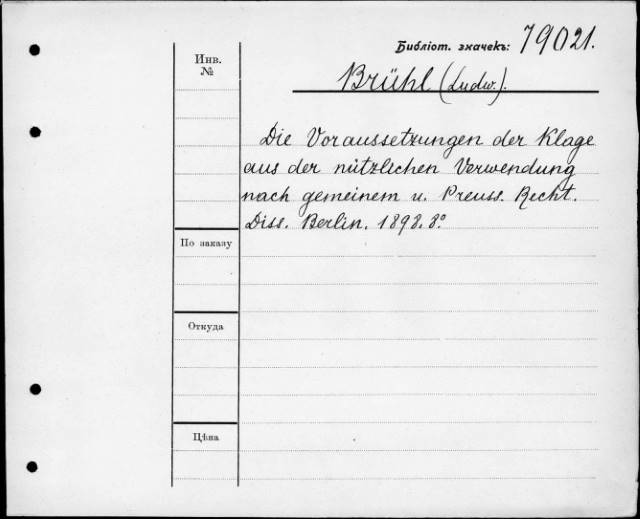 Библіот. значекъ: 79021.
Инв.
№
Brühl (Ludw.).
Die Voraussetzungen der Klage
aus der nützlichen Verwendung
nach gemeinem u. Preuss. Recht.
Diss. Berlin. 1898. 8º
По заказу
Откуда
Цѣна